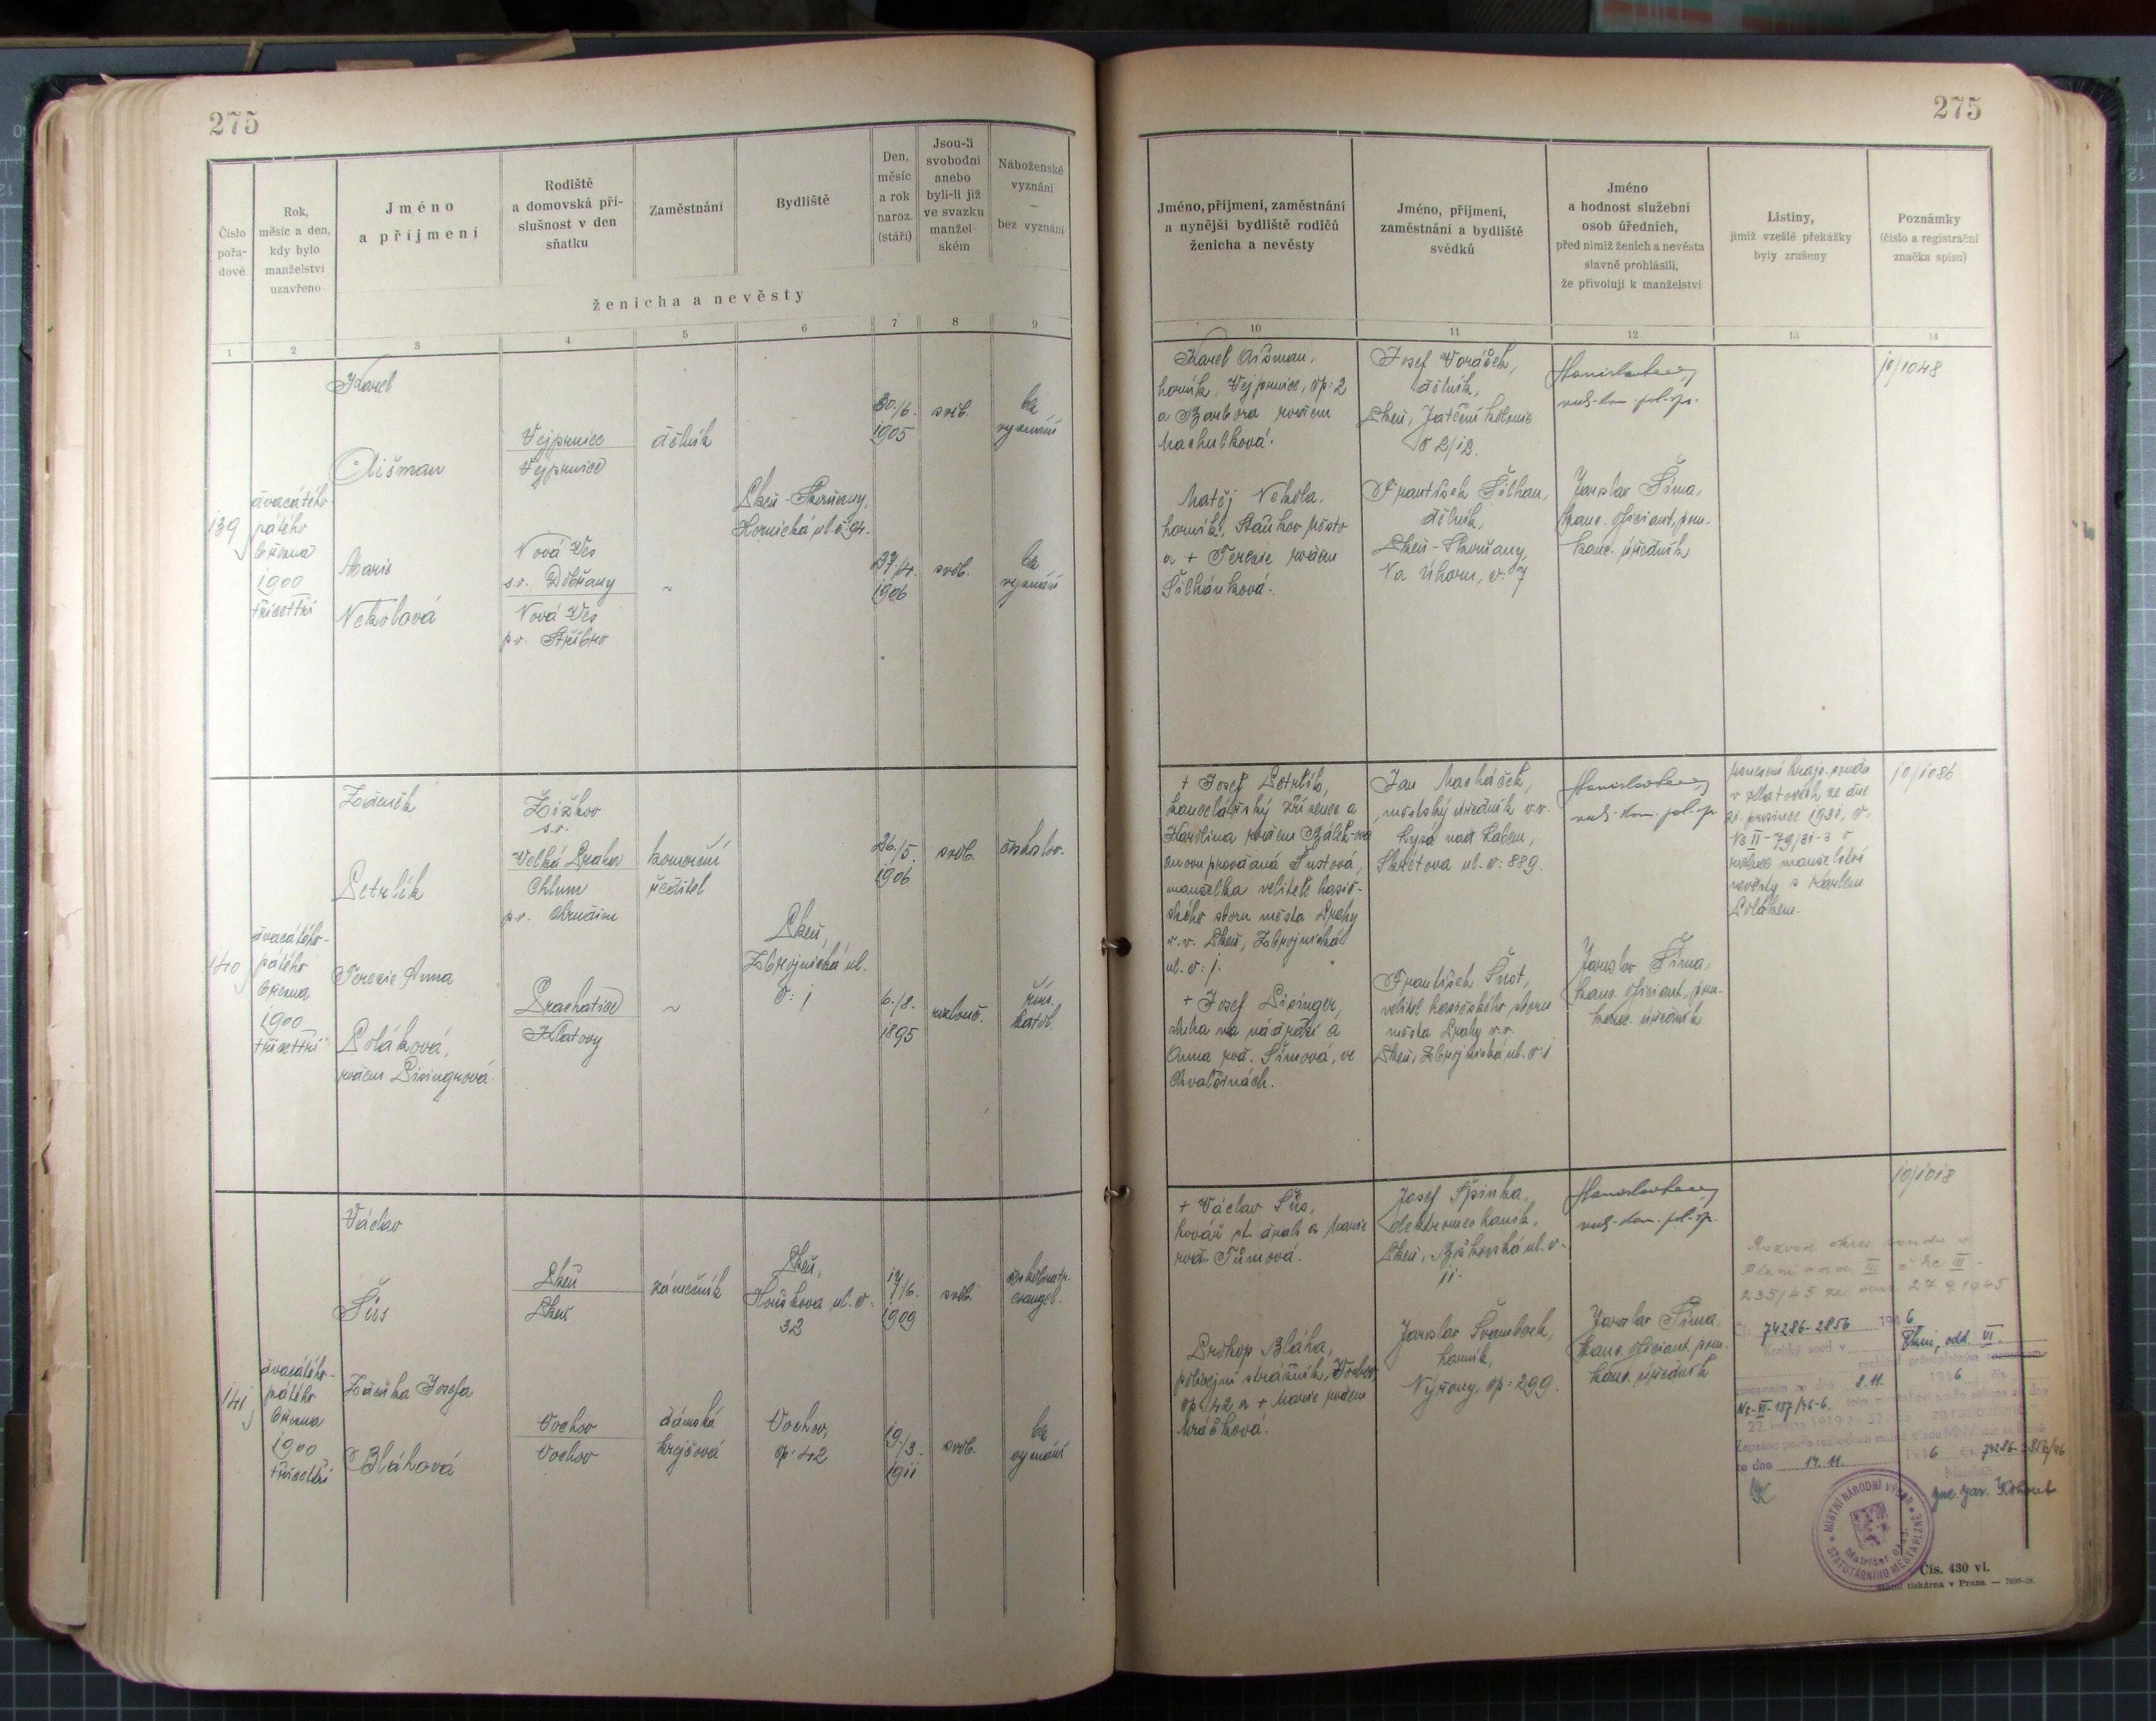 275
Číslo
pořa-
dové
Rok,
měsíc a den,
kdy bylo
manželství
uzavřeno
Jméno
a příjmení
Rodiště
a domovská pří-
slušnost v den
sňatku
Zaměstnání
Bydliště
Den,
měsíc
a rok
naroz.
(stáří)
Jsou-li
svobodni
anebo
byli-li již
ve svazku
manžel-
ském
Náboženské
vyznání
—
bez vyznání
ženicha a nevěsty
1
2
3
4
5
6
7
8
9
139
dvacátého
pátého
března
1900
třicettři
Karel
Aišman
Vejprnice
Vejprnice
dělník
30./6.
1905
svob.
bez
vyznání
Plzeň-Skvrňany,
Hornická ul. č: 94.
Marie
Nekolová
Nová Ves
s.o. Dobřany
Nová Ves
p.o. Stříbro
~
27/4.
1906
svob.
bez
vyznání
140
dvacátého-
pátého
března
1900
třicettři
Zdeněk
Petrlík
Žižkov
s.o.
Velká Praha
Chlum
p.o. Chrudim
komerční
ředitel
26./5.
1906
svob.
českoslov.
Plzeň,
Zbrojnická ul.
č: 1
Terezie Anna
Poláková,
rozem Pisingrová
Prachatice
Klatovy
~
6./8.
1895
rozlouč.
řím.
katol.
141
dvacátého-
pátého
března
1900
třicettři
Václav
Šůs
Plzeň
Plzeň
zámečník
Plzeň,
Houškova ul. č.
32
17/6.
1909
svob.
českobratr.
evangel.
Zdeňka Josefa
Bláhová
Vochov
Vochov
dámská
krejčová
Vochov,
čp: 42
19/3.
1911
svob.
bez
vyznání
275
Jméno, příjmení, zaměstnání
a nynější bydliště rodičů
ženicha a nevěsty
Jméno, příjmení,
zaměstnání a bydliště
svědků
Jméno
a hodnost služební
osob úředních,
před nimiž ženich a nevěsta
slavně prohlásili,
že přivolují k manželství
Listiny,
jimiž vzešlé překážky
byly zrušeny
Poznámky
(číslo a registrační
značka spisu)
10
11
12
13
14
Karel Aišman,
horník, Vejprnice, čp: 2
a Barbora rozem
Machulková.
Matěj Nekola,
horník, Staňkov město
a + Terezie rozem
Šilhánková.
Josef Voráček,
dělník,
Plzeň, Jateční kolonie
č 2/12.
František Šilhan,
dělník,
Plzeň-Skvrňany,
Na úhoru, č: 7
vrch. kom. pol. sp.
Jaroslav Šíma,
kanc. oficiant, pom.
kanc. úředník
10/1048
+ Josef Petrlík,
kancelářský zřízenec a
Karolina rozem
znovu provdaná Šustová,
manželka velitele hasič-
ského sboru města Prahy
v.v. Plzeň, Zbrojnická
ul. č: 1.
+ Josef Pisinger,
sluha na nádraží a
Anna roz. Šímová, ve
Chvalšinách.
Jan Macháček,
městský úředník v.v.
Lysá nad Labem,
Škrétova ul. č: 889.
František Šust,
velitel hasičského sboru
města Prahy v.v.
Plzeň, Zbrojnická ul. č: 1
vrch. kom. pol. sp.
Jaroslav Šíma,
kanc. oficiant, pom.
kanc. úředník
usnesení krajs. soudu
v Klatovech, ze dne
21. prosince 1931, č:
Nc II-79/31-3 o
rozluce manželství
nevěsty s Karlem
Polákem.
10/1086
+ Václav Šůs,
kovář st. drah a Marie
roz. Tůmová.
Prokop Bláha,
policejní strážník, Vochov,
čp: 42 a + Marie rozem
Mráčková.
Josef Špinka,
elektromechanik,
Plzeň, Božkovská ul. č.
11.
Jaroslav Švamberk,
horník,
Nýřany, čp: 299.
vrch. kom. pol. sp.
Jaroslav Šíma,
kanc. oficiant, pom.
kanc. úředník
10/1018
Rozvod okres. soudu v
Plzni odd. III č Nc III-
235/45 ze dne 27.9.1945
Čj. 74286-2856 1946
Krajský soud v Plzni, odd. VI.
usnesením ze dne 8.11. 1946 čís.
Nc-VI-137/46-6.
ze dne 14.11. 1946 74286-2856/46
Matrikář:
Jar. Kohout
MÍSTNÍ NÁRODNÍ VÝBOR
STATUTÁRNÍHO MĚSTA PLZNĚ
Čís. 430 vl.
Státní tiskárna v Praze. —